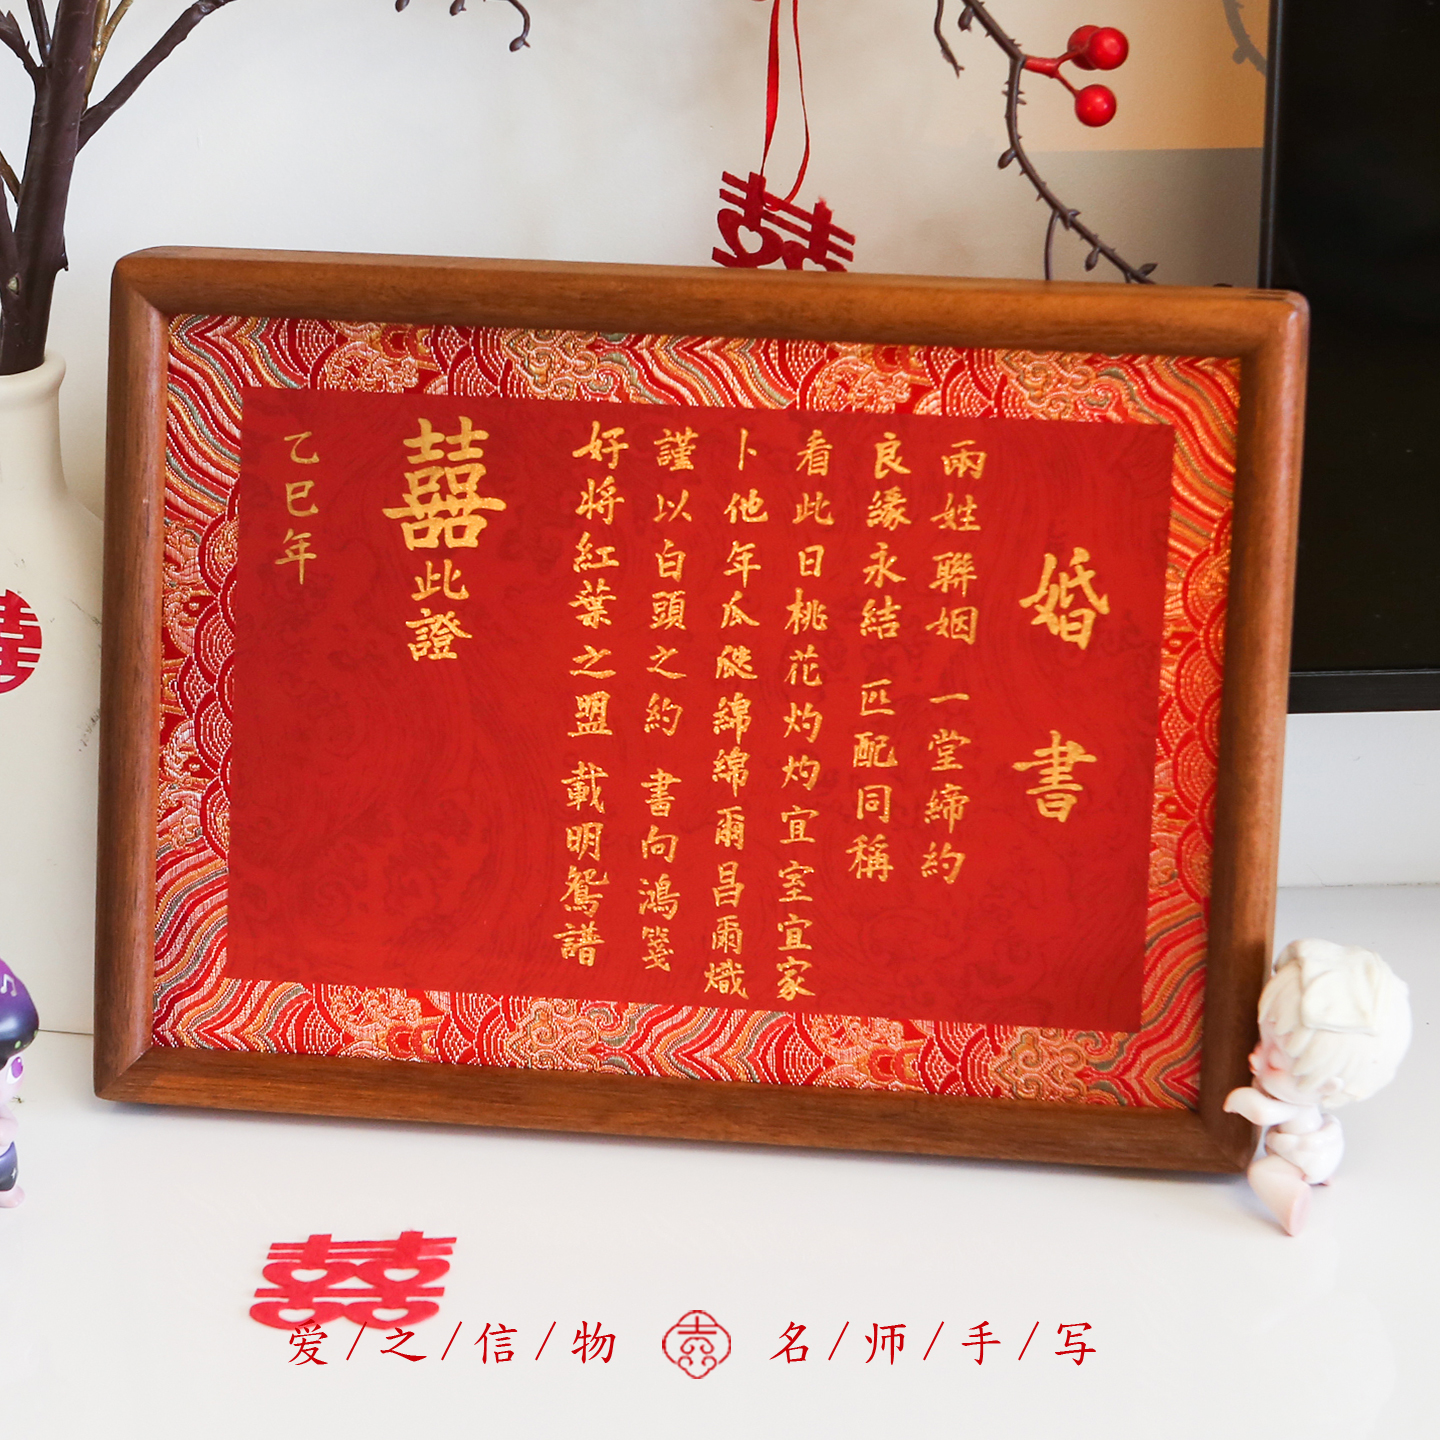 婚書
兩姓聯姻 一堂締約
良緣永結 匹配同稱
看此日桃花灼灼宜室宜家
卜他年瓜瓞綿綿爾昌爾熾
謹以白頭之約 書向鴻箋
好將紅葉之盟 載明鴛譜
囍此證
乙巳年
囍
囍
囍
爱/之/信/物 名/师/手/写